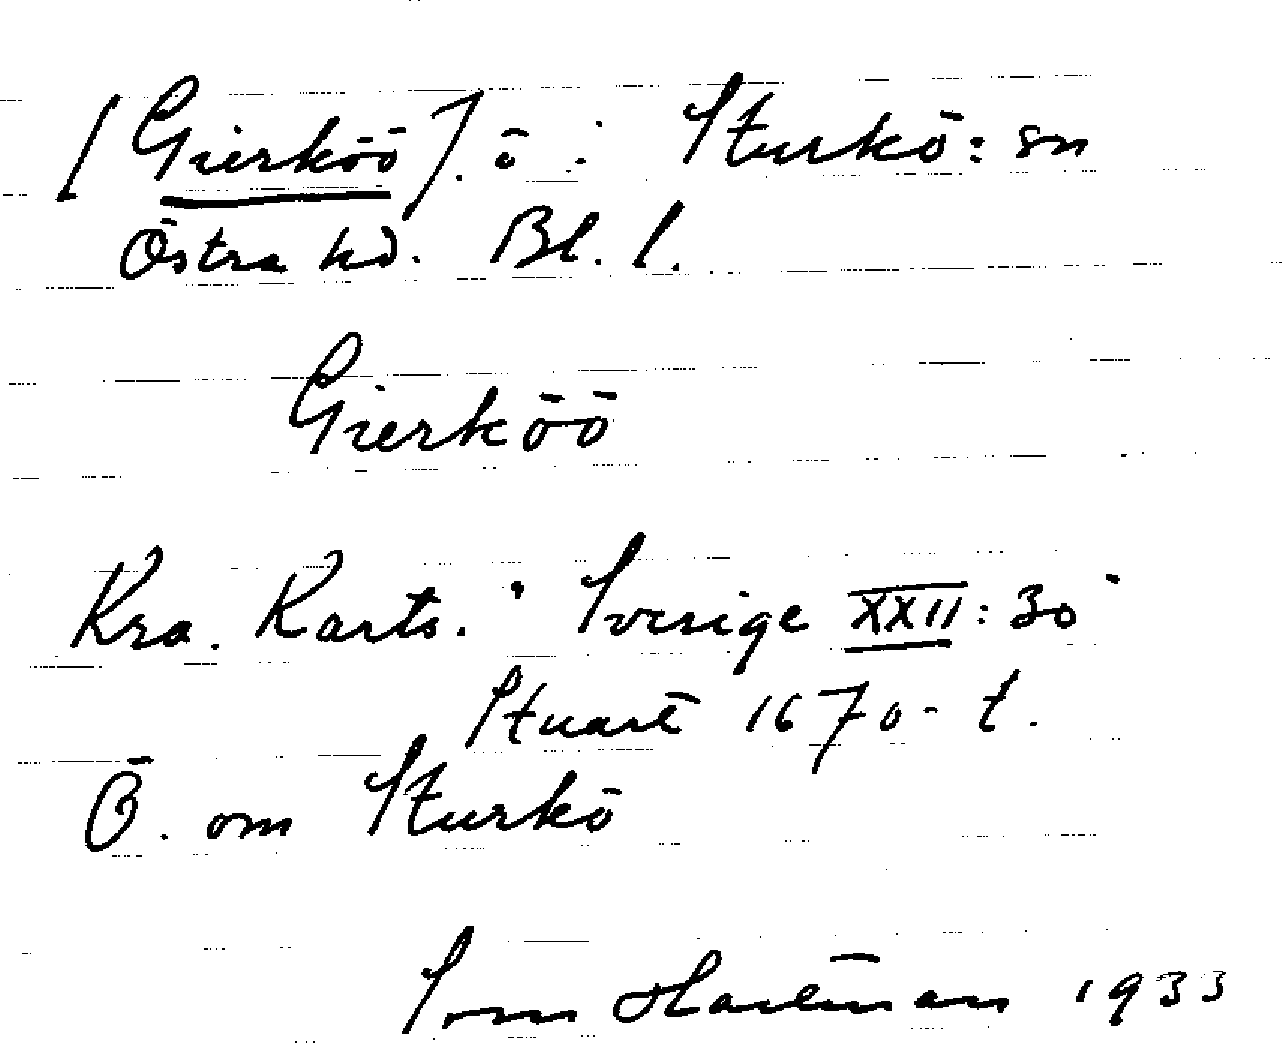 [Gierköö]. ö i Sturkö: sn
Östra hd. Bl. l.
Gierköö
Kra. Karts. i Sverige XXII: 30
Stuart 1670-t.
Ö. om Sturkö
Hartman 1933